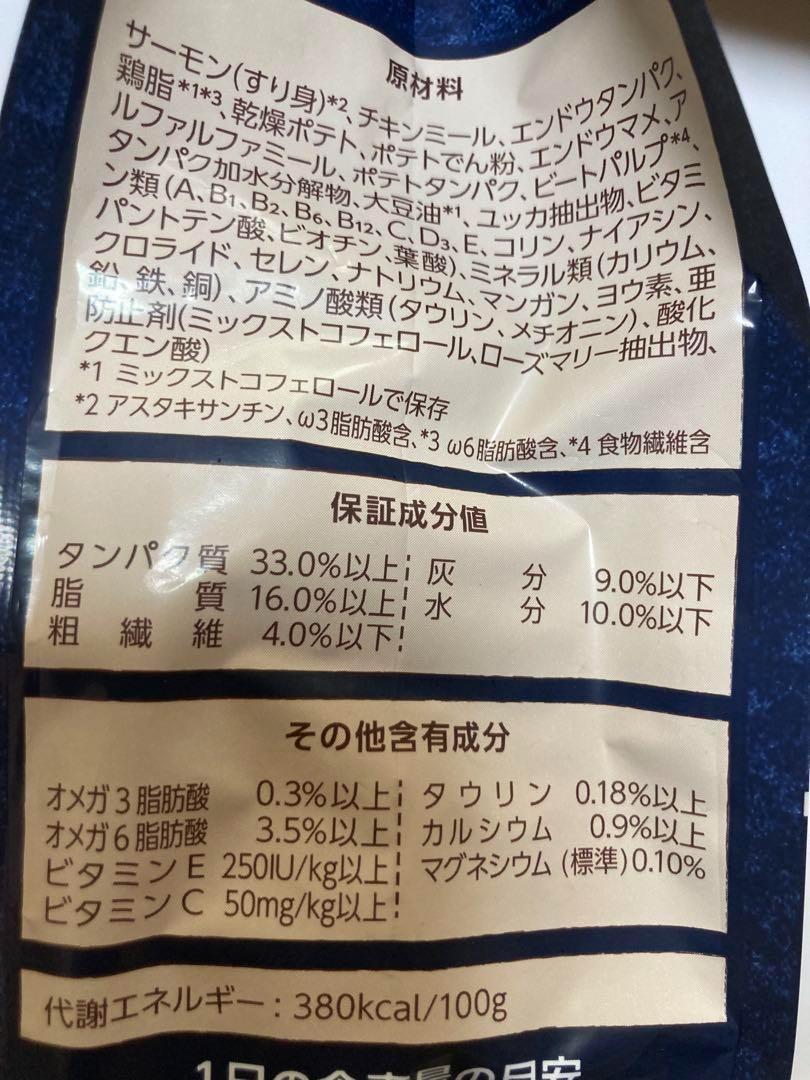 原材料
サーモン(すり身)*2、チキンミール、エンドウタンパク、
鶏脂*1*3、乾燥ポテト、ポテトでん粉、エンドウマメ、ア
ルファルファミール、ポテトタンパク、ビートパルプ*4、
タンパク加水分解物、大豆油*1、ユッカ抽出物、ビタミ
ン類(A、B1、B2、B6、B12、C、D3、E、コリン、ナイアシン、
パントテン酸、ビオチン、葉酸)、ミネラル類(カリウム、
クロライド、セレン、ナトリウム、マンガン、ヨウ素、亜
鉛、鉄、銅)、アミノ酸類(タウリン、メチオニン)、酸化
防止剤(ミックストコフェロール、ローズマリー抽出物、
クエン酸)
*1 ミックストコフェロールで保存
*2 アスタキサンチン、ω3脂肪酸含、*3 ω6脂肪酸含、*4 食物繊維含
保証成分値
タンパク質 33.0%以上 灰分 9.0%以下
脂質 16.0%以上 水分 10.0%以下
粗繊維 4.0%以下
その他含有成分
オメガ3脂肪酸 0.3%以上 タウリン 0.18%以上
オメガ6脂肪酸 3.5%以上 カルシウム 0.9%以上
ビタミンE 250IU/kg以上 マグネシウム(標準)0.10%
ビタミンC 50mg/kg以上
代謝エネルギー:380kcal/100g